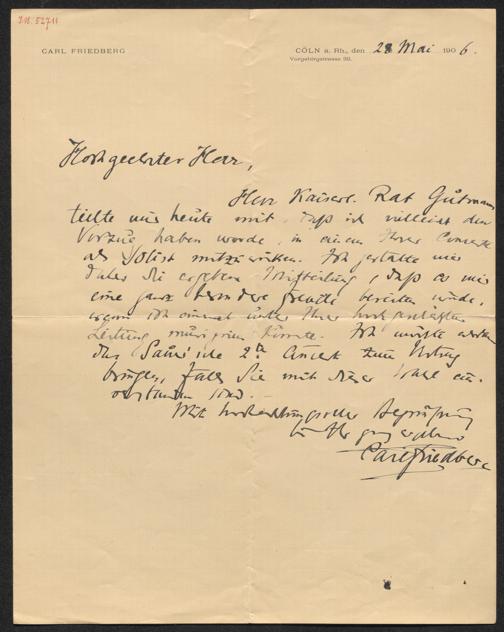 I.N. 52711
CARL FRIEDBERG
CÖLN a. Rh., den 28 Mai 1906.
Vorgebirgstrasse
Hochgeehrter Herr,
Herr Kaiserl. Rat Gutmann
teilte mir heute mit, daß ich vielleicht den
Vorzug haben werde, in einem Ihrer Concerte
als Solist mitzuwirken. Ich gestatte mir
daher die ergebene Mitteilung, daß es mir
eine ganz besondere Freude bereiten würde,
wenn ich einmal unter Ihrer
Leitung musizieren könnte. Ich
das 2te Concert zum Vortrag
bringen, falls Sie mit dieser Wahl ein-
verstanden sind. –
Mit hochachtungsvoller Begrüßung
bin Ihr ganz ergebener
Carl Friedberg